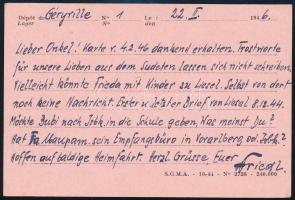 Dépôt de Géryville N° 1 Le : 22. I. 1946.
Lager N° den
Lieber Onkel! Karte v. 4.2.46 dankend erhalten. Trostworte
für unsere Lieben aus dem Sudeten lassen sich nicht schreiben.
Vielleicht könnte Frieda mit Kinder zu Liesel. Selbst von dort
noch keine Nachricht. Erster u. letzter Brief von Liesal 8.12.44.
Möchte Bubi nach Jsbk. in die Schule geben. Was meinst Ju?
Hat Fa. Maupam. sein Empfangsbüro in Vorarlberg od. Jsbk.?
Hoffen auf baldige Heimfahrt. Herzl. Grüsse, Euer
Friedl.
S.G.M.A. - 10-44 - N° 2728 - 240.000